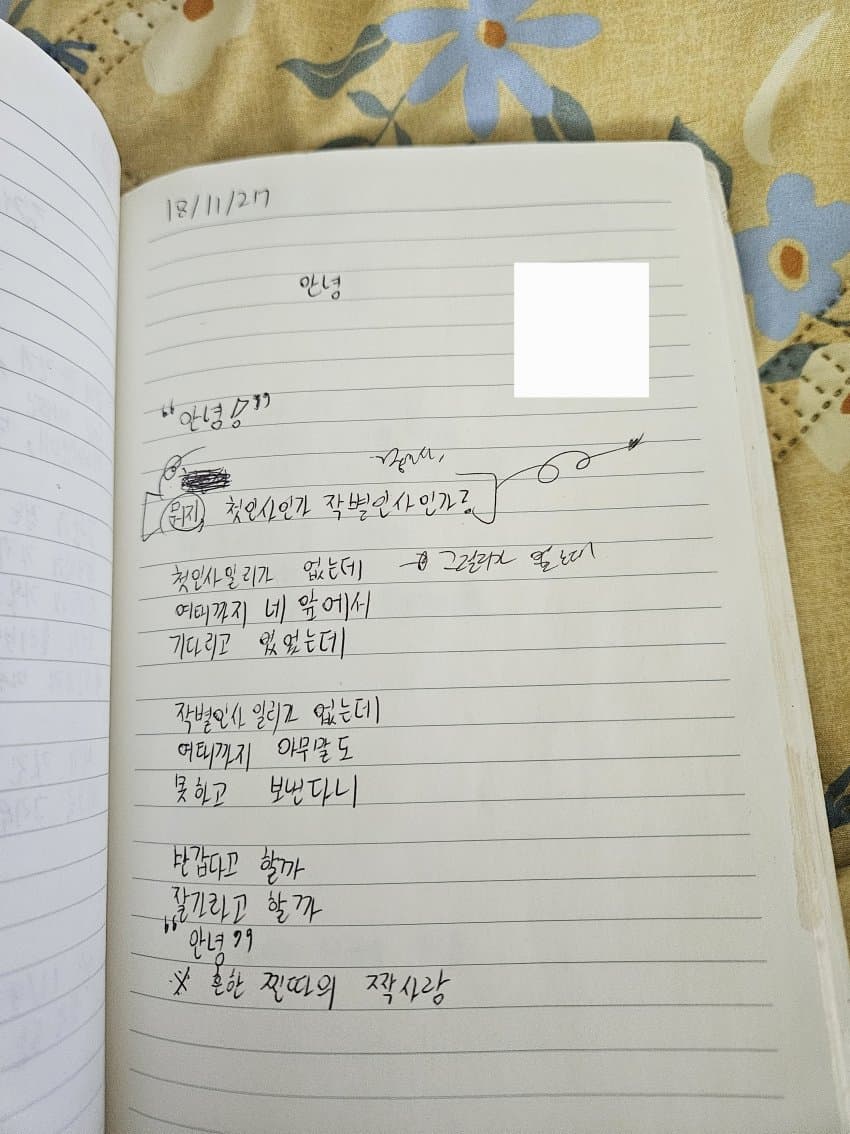 18/11/27
안녕
"안녕!"
뭐지 첫인사인가 작별인사인가?
첫인사일리가 없는데 → 그럴리가 없는데
여태까지 네 앞에서
기다리고 있었는데
작별인사일리가 없는데
여태까지 아무말도
못하고 보낸다니
반갑다고 할까
잘가라고 할까
"안녕"
※ 흔한 찐따의 짝사랑